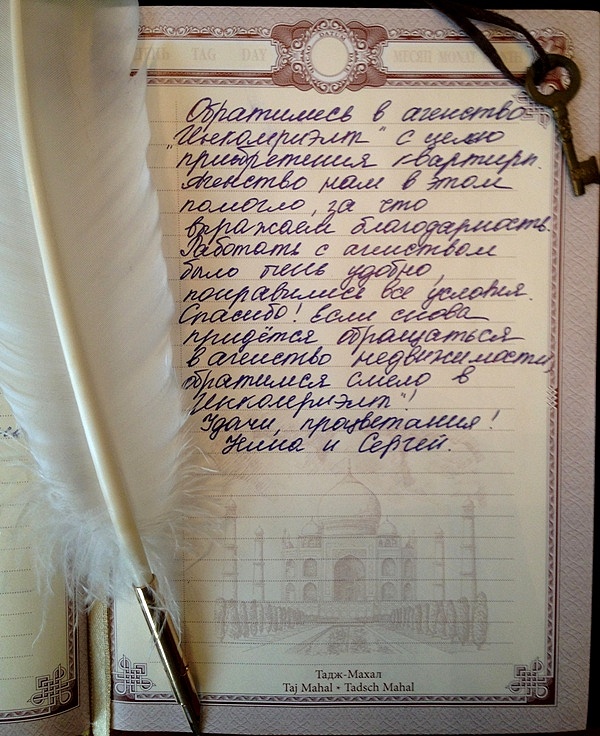 ДАТА DATUM
ДЕНЬ TAG DAY МЕСЯЦ MONAT MONTH
Обратились в агенство
"Инкомриэлт" с целью
приобретения квартиры.
Агенство нам в этом
помогло, за что
выражаем благодарность.
Работать с агенством
было очень удобно,
понравились все условия.
Спасибо! Если снова
придётся обращаться
в агенство недвижимости,
обратимся смело в
"Инкомриэлт"!
Удачи, процветания!
Нина и Сергей.
Тадж-Махал
Taj Mahal • Tadsch Mahal